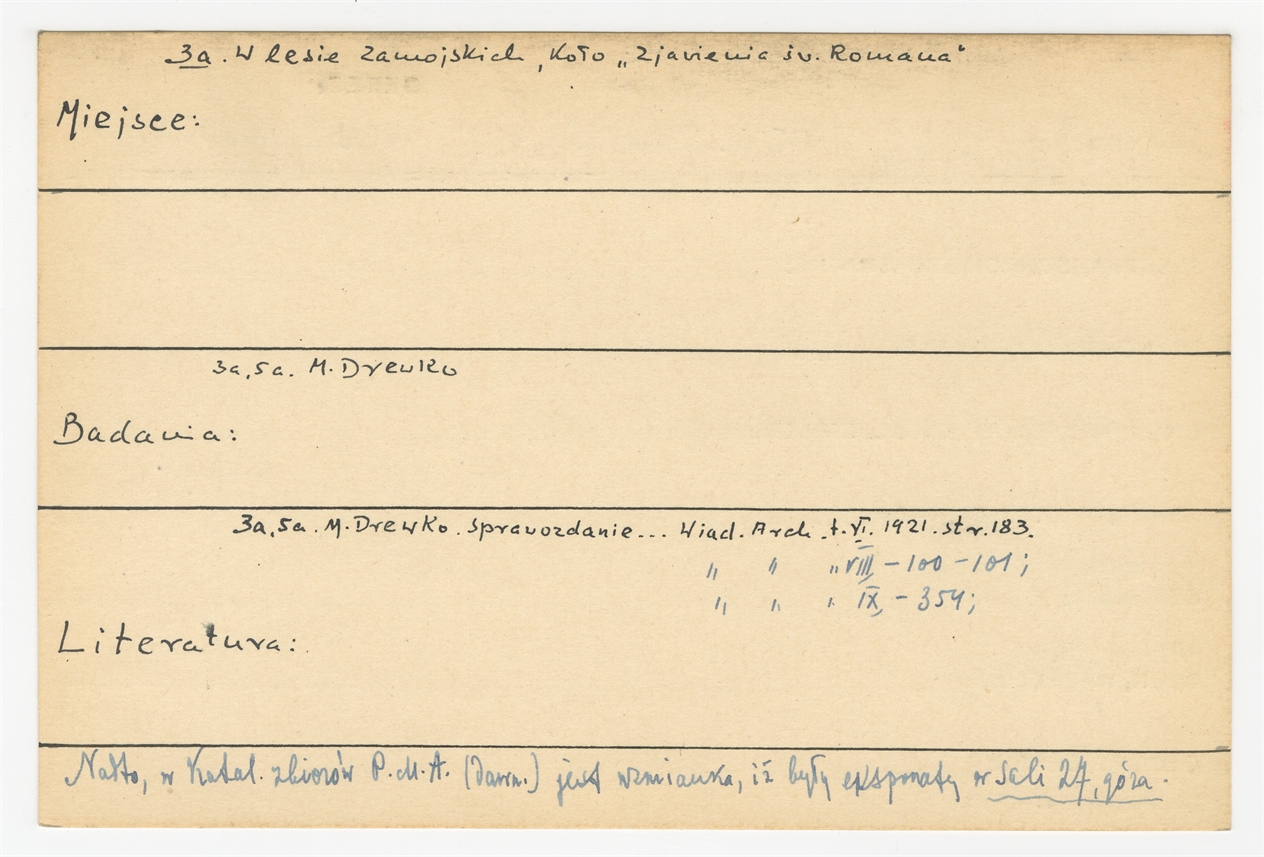 3a. W lesie Zamojskich, koło „Zjawienia św. Romana"
Miejsce:
3a, 5a. M. Drewko
Badania:
3a, 5a. M. Drewko. Sprawozdanie... Wiad. Arch. t. VI. 1921. str. 183.
" " " VIII - 100 - 101;
" " " IX, - 354;
Literatura:
Nadto, w Katal. zbiorów P.M.A. (dawn.) jest wzmianka, iż były eksponaty w Sali 27, góra.